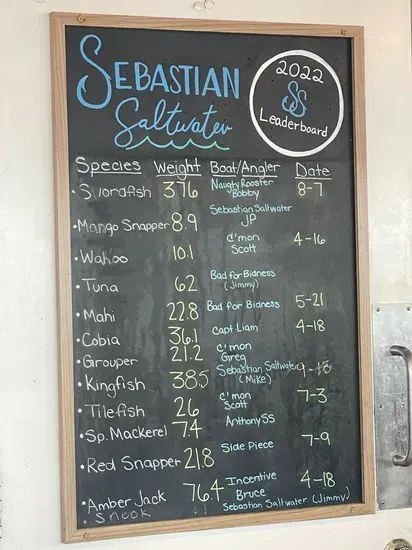 SEBASTIAN
Saltwater
2022
SS
Leaderboard
Species Weight Boat/Angler Date
• Swordfish 376 Naughty Rooster Bobby 8-7
• Mango Snapper 8.9 Sebastian Saltwater JP
• Wahoo 10.1 C'mon Scott 4-16
• Tuna 62 Bad for Bidness (Jimmy)
• Mahi 22.8 Bad for Bidness 5-21
• Cobia 36.1 Capt Liam 4-18
• Grouper 21.2 C'mon Greg
• Kingfish 38.5 Sebastian Saltwater (Mike)
• Tilefish 26 C'mon Scott 7-3
• Sp. Mackerel 7.4 Anthony SS
• Red Snapper 21.8 Side Piece 7-9
• Amber Jack 76.4 Incentive Bruce 4-18
• Snook Sebastian Saltwater (Jimmy)